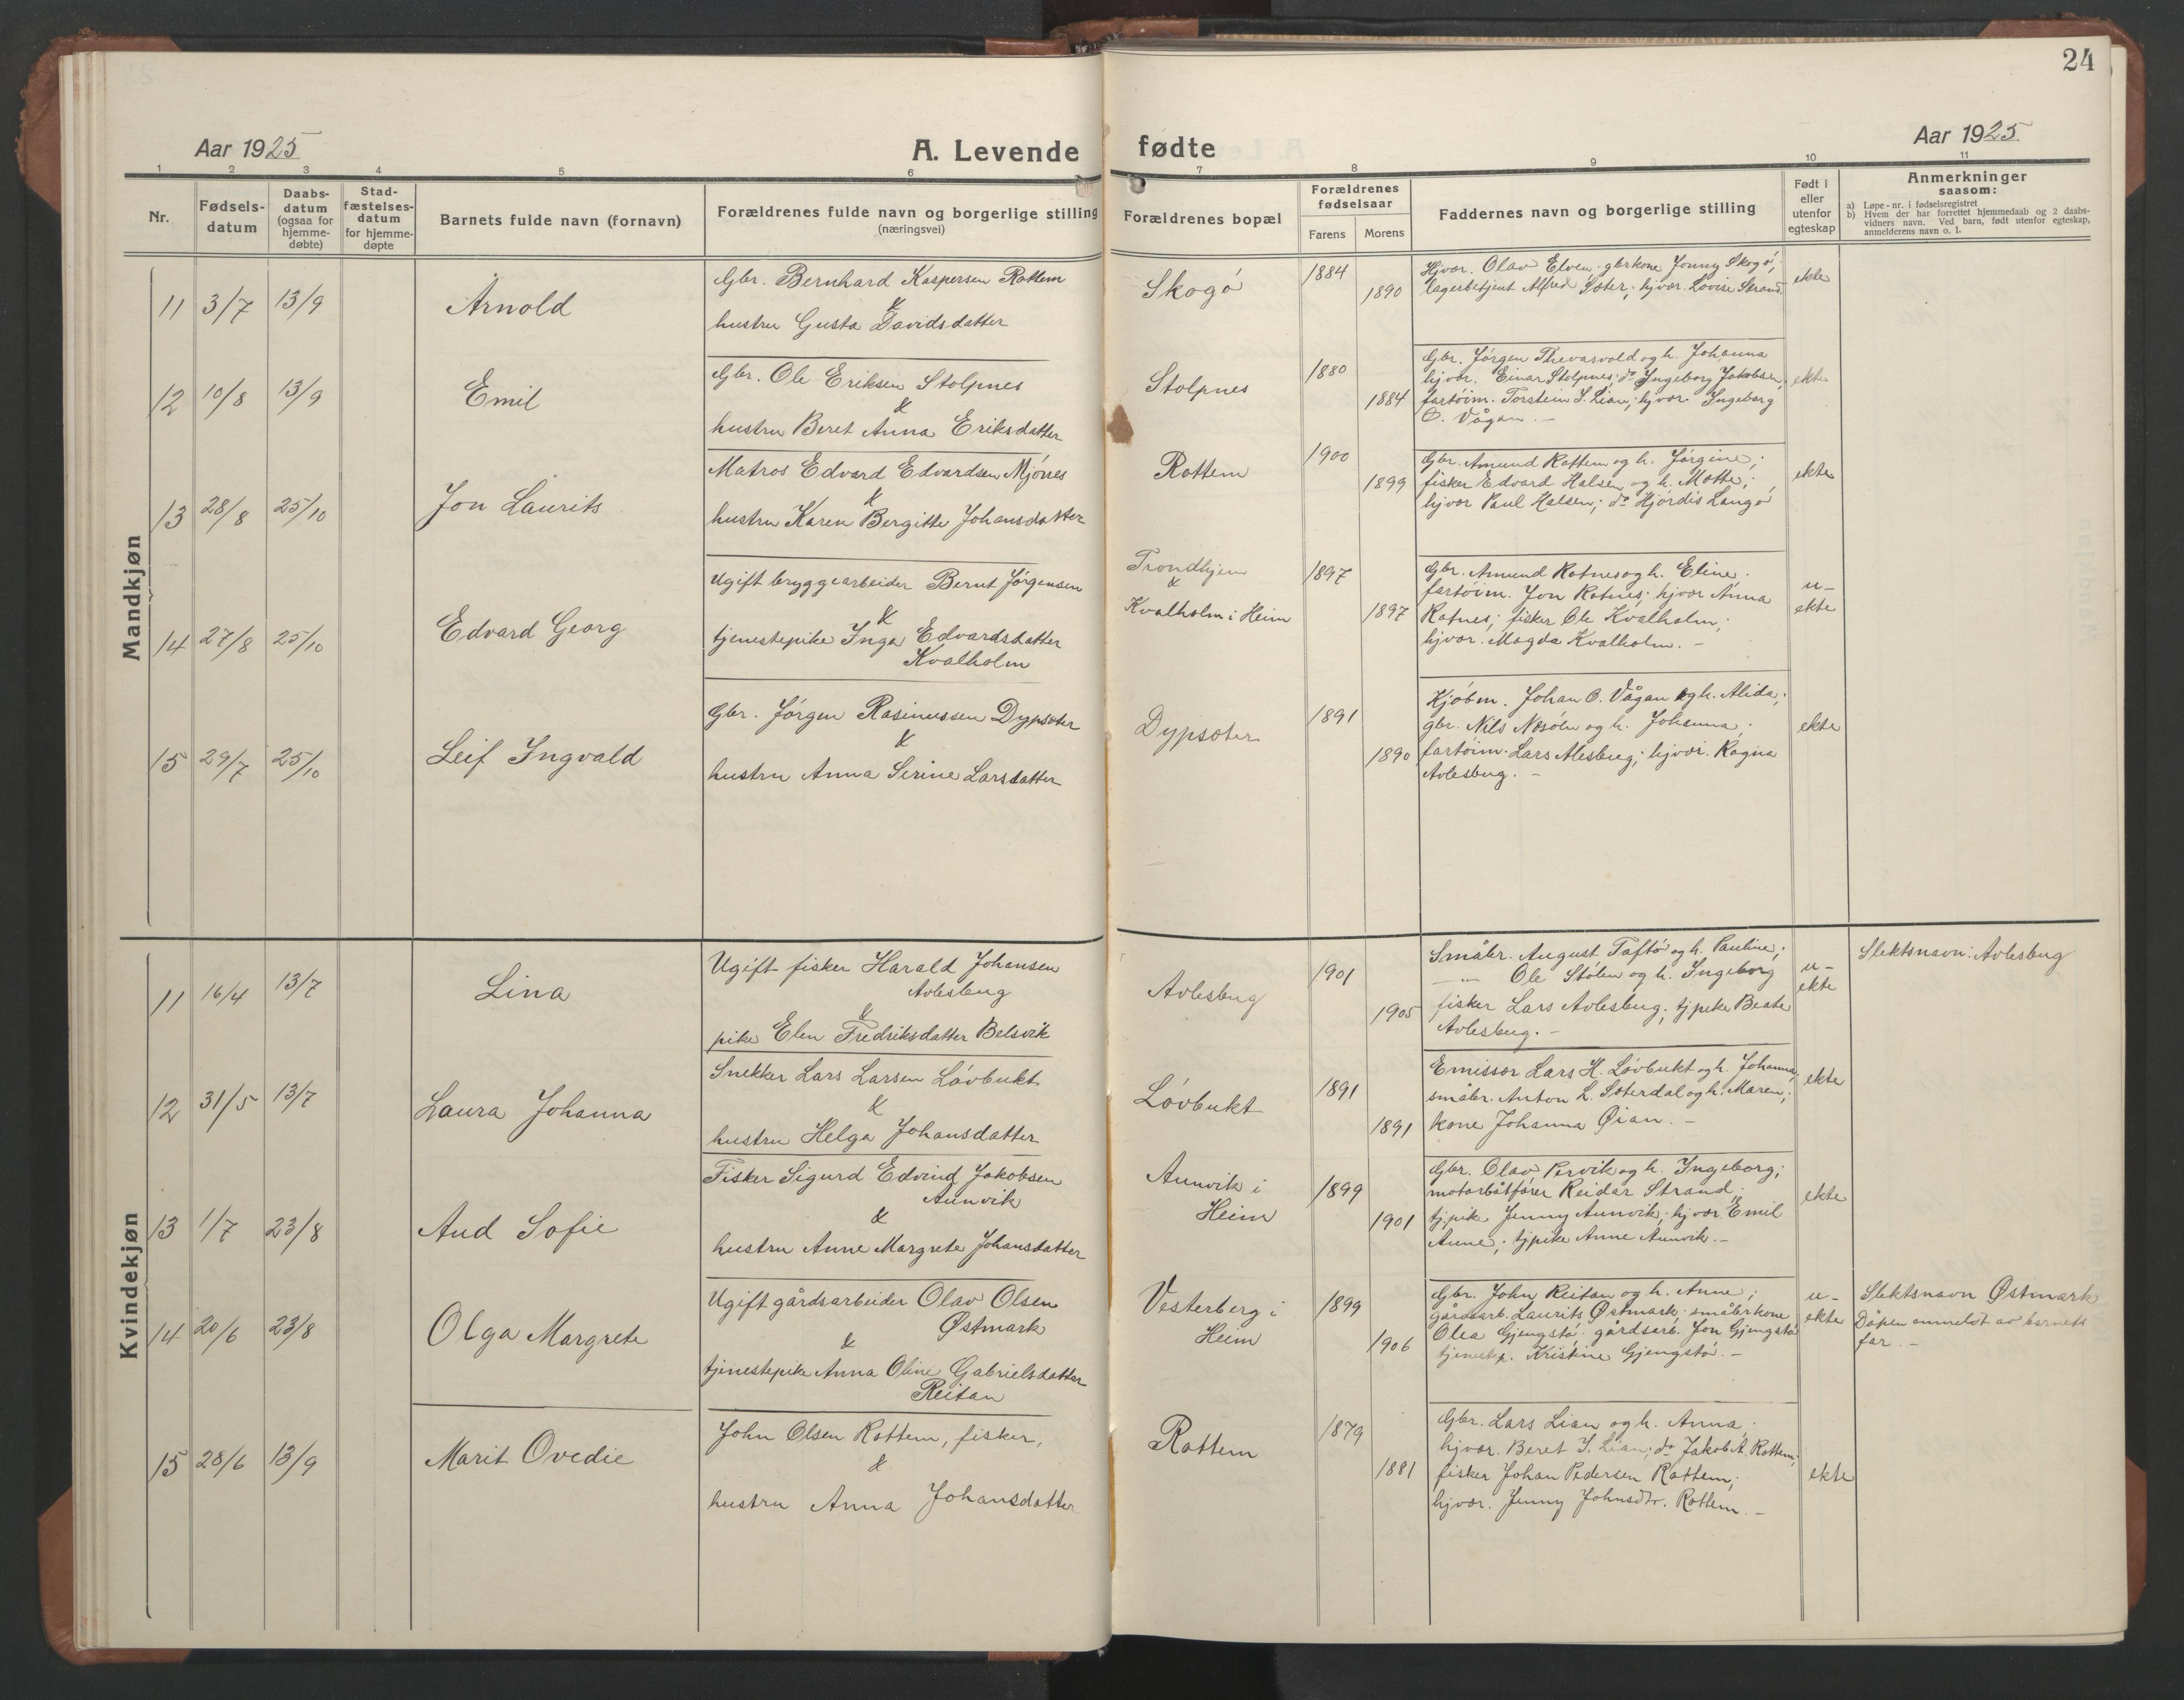 24
Aar 1925
A. Levende fødte
Aar 1925
1 2 3 4 5 6 7 8 9 10 11
Nr.
Fødsels-
datum
Daabs-
datum
(ogsaa for
hjemme-
døbte)
Stad-
fæstelses-
datum
for hjemme-
døpte
Barnets fulde navn (fornavn)
Forældrenes fulde navn og borgerlige stilling
(næringsvei)
Forældrenes bopæl
Forældrenes
fødselsaar
Farens
Morens
Faddernes navn og borgerlige stilling
Født i
eller
utenfor
egteskap
Anmerkninger
saasom:
a) Løpe-nr. i fødselsregistret
b) Hvem der har forrettet hjemmedaab og 2 daabs-
vidners navn. Ved barn, født utenfor egteskap,
anmelderens navn o. l.
Mandkjøn
11 3/7 13/9 Arnold
Gbr. Bernhard Kaspersen Rottem
&
hustru Gusta Davidsdatter
Skogø
1884
1890
Hjvær. Olav Elven; gbrkone Jonny Skogø;
lagerbetjent Alfred Sæter; hjvær. Lovise Strand
ekte
12 10/8 13/9 Emil
Gbr. Ole Eriksen Stolpnes
&
hustru Beret Anna Eriksdatter
Stolpnes
1880
1884
Gbr. Jørgen Thevasvold og h. Johanna
hjvær. Einar Stolpnes; do Ingeborg Jakobsen;
fartøim. Torstein S. Lian; hjvær Ingeborg
O. Vågan. –
ekte
13 28/8 25/10 Jon Laurits
Matros Edvard Edvardsen Mjønes
&
hustru Karen Bergitte Johansdatter
Rottem
1900
1899
Gbr. Amund Rottem og h. Jørgine;
fisker Edvard Halsen og h. Motte;
hjvær Paul Halsen; do Hjørdis Langø
ekte
14 27/8 25/10 Edvard Georg
Ugift bryggearbeider Bernt Jørgensen
&
tjenestepike Inga Edvardsdatter
Kvalholm
Trondhjem
&
Kvalholm i Heim
1897
1897
Gbr. Amund Rotnes og h. Eline;
fartøim. Jon Rotnes; hjvær Anna
Rotnes; fisker Ole Kvalholm;
hjvær. Magda Kvalholm. –
u-
ekte
15 29/7 25/10 Leif Ingvald
Gbr. Jørgen Rasmussen Dypsæter
&
hustru Anna Serine Larsdatter
Dypsæter
1891
1890
Kjøbm. Johan O. Vågan og h. Alida;
gbr. Nils Nesølen og h. Johanna;
fartøim. Lars Alesbug; hjvær. Ragna
Avlesbug. –
ekte
Kvindekjøn
11 16/4 13/7 Lina
Ugift fisker Harald Johansen
Avlesbug
&
pike Elen Fredriksdatter Belsvik
Avlesbug
1901
1905
Småbr. August Taftø og h. Pauline;
–"– Ole Stølen og h. Ingeborg
fisker Lars Avlesbug; tjpike Beate
Avlesbug. –
u-
ekte
Slektsnavn: Avlesbug
12 31/5 13/7 Laura Johanna
Snekker Lars Larsen Løvbukt
&
hustru Helga Johansdatter
Løvbukt
1891
1891
Emissær Lars H. Løvbukt og h. Johanna;
småbr. Anton L. Sæterdal og h. Maren;
kone Johanna Øian. –
ekte
13 1/7 23/8 Aud Sofie
Fisker Sigurd Edvind Jakobsen
Aunvik
&
hustru Anne Margrete Johansdatter
Aunvik i
Heim
1899
1901
Gbr. Olav Pervik og h. Ingeborg;
motorbåtfører Reidar Strand;
tjpike Jenny Aunvik; hjvær Emil
Aune; tjpike Anne Aunvik. –
ekte
14 20/6 23/8 Olga Margrete
Ugift gårdsarbeider Olav Olsen
Østmark
&
tjenestepike Anna Oline Gabrielsdatter
Reitan
Vesterberg i
Heim
1899
1906
Gbr. John Reitan og h. Anne;
gårdsarb. Laurits Østmark; småbrkone
Olea Gjengstø; gårdsarb. Jon Gjengstø
tjenestep. Kristine Gjengstø. –
u-
ekte
Slektsnavn Østmark
Dåpen anmeldt av barnets
far. –
15 28/6 13/9 Marit Ovedie
John Olsen Rottem, fisker,
&
hustru Anna Johansdatter
Rottem
1879
1881
Gbr. Lars Lian og h. Anna;
hjvær. Beret S. Lian; do Jakob A. Rottem;
fisker Johan Pedersen Rottem;
hjvær. Jenny Johnsdtr. Rottem. –
ekte